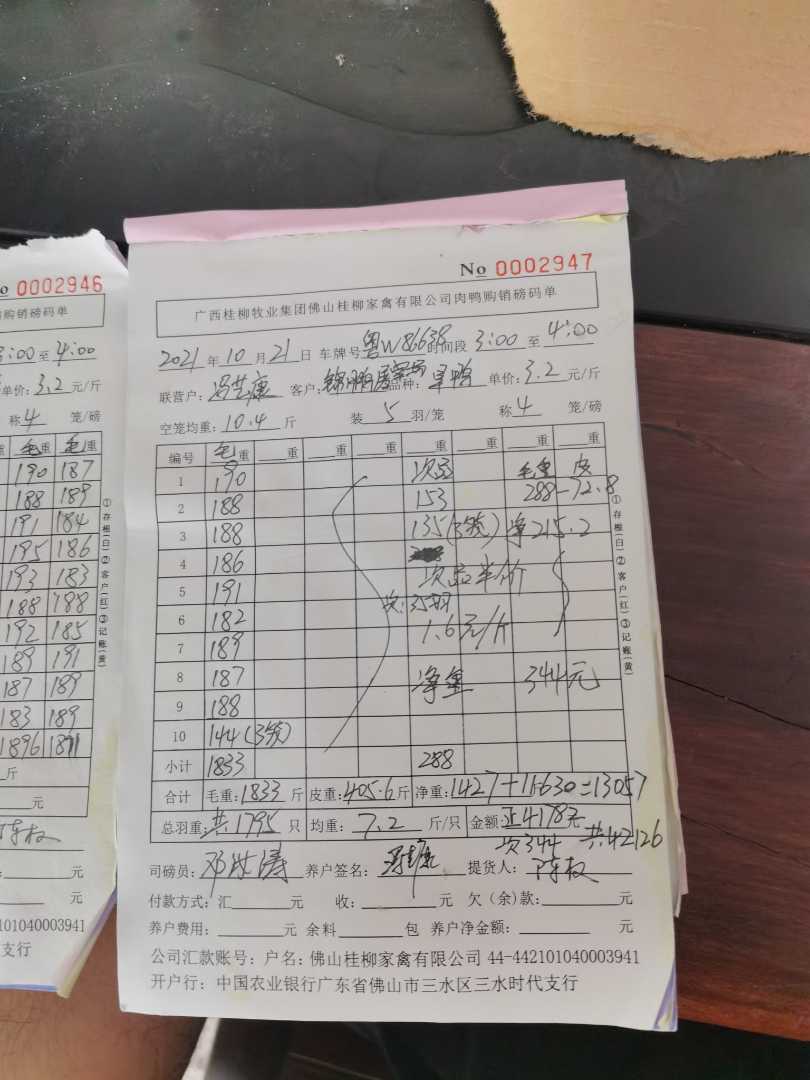 No 0002946
购销磅码单
3:00 至 4:00
单价: 3.2 元/斤
称 4 笼/磅
重 毛重 毛重
190 187
188 189
191 184
195 186
193 183
188 188
192 185
189 191
187 189
183 189
1896 1871
斤
元
陈权
元
元
101040003941
支行
①存根(白)②客户(红)③记账(黄)
No 0002947
广西桂柳牧业集团佛山桂柳家禽有限公司肉鸭购销磅码单
2021 年 10 月 21 日 车牌号 粤W86638 时间段 3:00 至 4:00
联营户: 客户: 品种: 鸭 单价: 3.2 元/斤
空笼均重: 10.4 斤 装 5 羽/笼 称 4 笼/磅
编号 毛重 重 重 重 重 重 重 重
1 190 次品 毛重 皮
2 188 153 288-72.8
3 188 135(3笼) 净215.2
4 186
5 191 次品半价
次:35羽
6 182 1.6元/斤
7 189
8 187 净重 344元
9 188
10 144(3笼)
小计 1833 288
合计 毛重: 1833 斤 皮重: 405.6 斤 净重: 1427+11630=13057
总羽重: 共1795 只 均重: 7.2 斤/只 金额: 正4178元
次344 共42126
司磅员: 养户签名: 提货人: 陈权
付款方式: 汇 元 收: 元 欠(余)款: 元
养户费用: 元 余料 包 养户净金额: 元
公司汇款账号: 户名: 佛山桂柳家禽有限公司 44-442101040003941
开户行: 中国农业银行广东省佛山市三水区三水时代支行
①存根(白)②客户(红)③记账(黄)